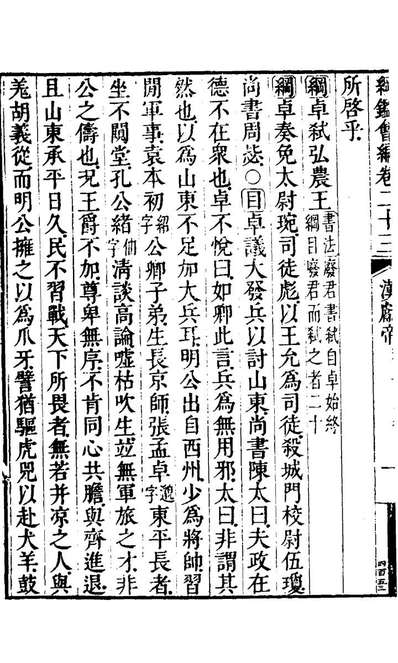 綱鑑會編卷二十三 漢 帝 一 四百五三
所啓乎
綱卓弑弘農王 書法廢君書弑自卓始終
綱目廢君而弑之者二十
綱卓奏免太尉琬司徒彪以王允爲司徒殺城門校尉伍瓊
尚書周毖○目卓議大發兵以討山東尚書陳太曰夫政在
德不在衆也卓不悅曰如卿此言兵爲無用邪太曰非謂其
然也以爲山東不足加大兵耳明公出自西州少爲將帥習
閒軍事袁本初紹字公卿子弟生長京師張孟卓邈字東平長者
坐不闚堂孔公緒伷字淸談高論噓枯吹生竝無軍旅之才非
公之儔也况王爵不加尊卑無序不肯同心共膽與齊進退
且山東承平日久民不習戰天下所畏者無若并凉之人與
羌胡義從而明公擁之以爲爪牙譬猶驅虎兕以赴犬羊鼓